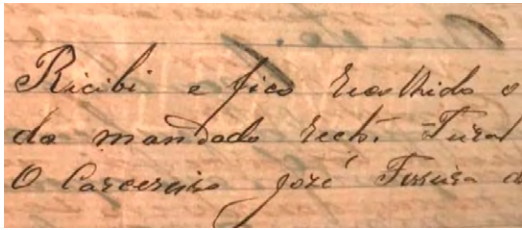 Ricibi e fico recolhido o
do mandado rectº. Tural
O Carcereiro José Ferreira d